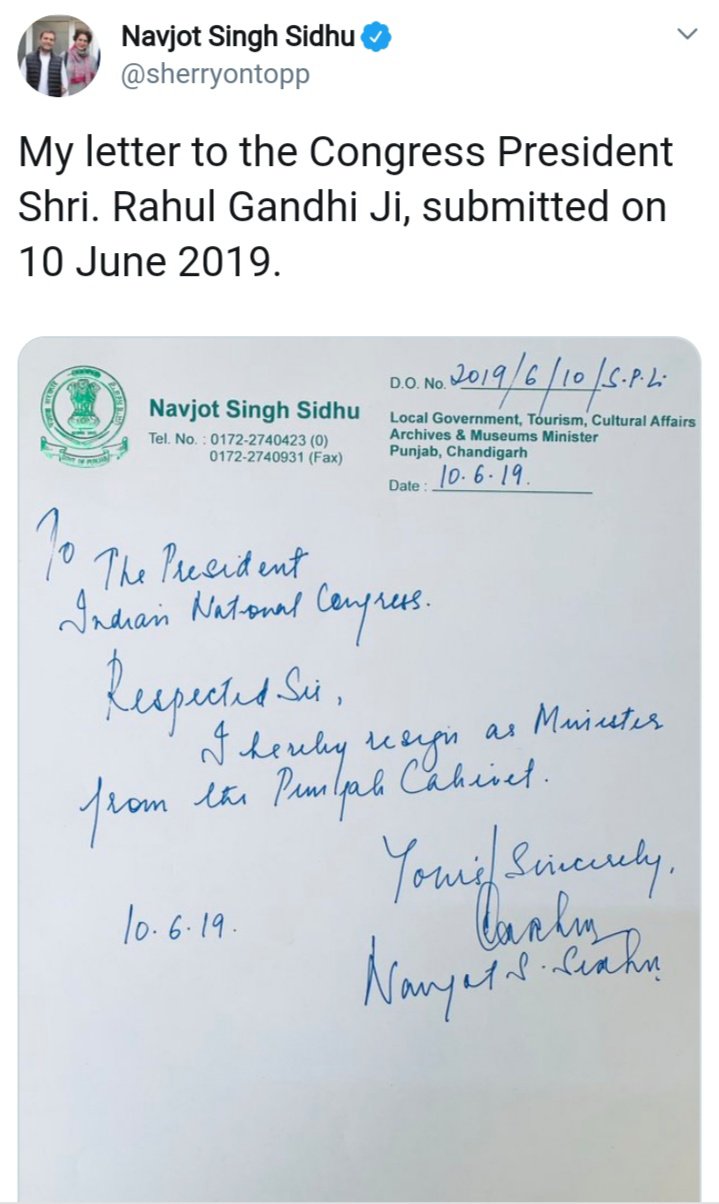 Navjot Singh Sidhu
@sherryontopp
My letter to the Congress President
Shri. Rahul Gandhi Ji, submitted on
10 June 2019.
Navjot Singh Sidhu
Tel. No. : 0172-2740423 (0)
0172-2740931 (Fax)
D.O. No. 2019/6/10/S.P.L.
Local Government, Tourism, Cultural Affairs
Archives & Museums Minister
Punjab, Chandigarh
Date : 10.6.19.
To
The President
Indian National Congress.
Respected Sir,
I hereby resign as Minister
from the Punjab Cabinet.
Yours Sincerely,
10.6.19.
Navjot S. Sidhu